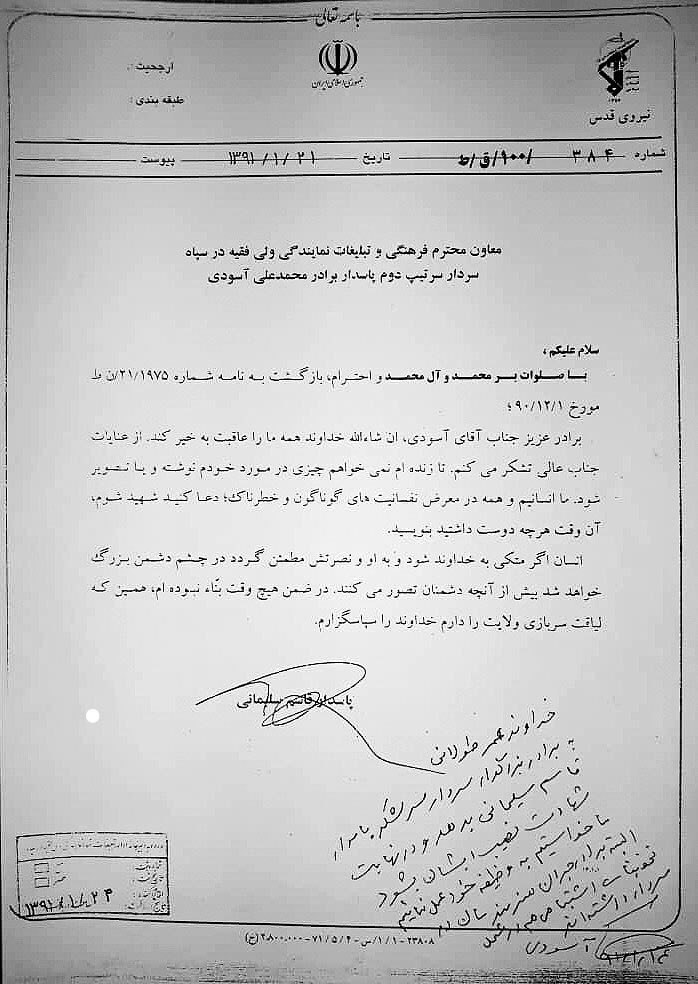 باسمه تعالی
جمهوری اسلامی ایران
نیروی قدس
ارجحیت :
طبقه بندی :
شماره ۳۸۴ /۱۰۰/ق/ط تاریخ ۱۳۹۱/۱/۲۱ پیوست
معاون محترم فرهنگی و تبلیغات نمایندگی ولی فقیه در سپاه
سردار سرتیپ دوم پاسدار برادر محمدعلی آسودی
سلام علیکم ،
با صلوات بر محمد و آل محمد و احترام، بازگشت به نامه شماره ۲۱/۱۹۷۵/ن ط
مورخ ۹۰/۱۲/۱ ؛
برادر عزیز جناب آقای آسودی، ان شاءالله خداوند همه ما را عاقبت به خیر کند. از عنایات
جناب عالی تشکر می کنم. تا زنده ام نمی خواهم چیزی در مورد خودم نوشته و یا تصویر
شود. ما انسانیم و همه در معرض نفسانیت های گوناگون و خطرناک؛ دعا کنید شهید شوم،
آن وقت هرچه دوست داشتید بنویسید.
انسان اگر متکی به خداوند شود و به او و نصرتش مطمئن گردد در چشم دشمن بزرگ
خواهد شد بیش از آنچه دشمنان تصور می کنند. در ضمن هیچ وقت بنّاء نبوده ام، همین که
لیاقت سربازی ولایت را دارم خداوند را سپاسگزارم.
پاسدار قاسم سلیمانی
خداوند عمر طولانی
به برادر بزرگوار سردار سرلشکر پاسدار
قاسم سلیمانی بدهد و در نهایت
شهادت نصیب ایشان بشود
ما خواستیم به وظیفه خود عمل نماییم
البته برای جبران
آسودی
۱۳۹۱/۱/۲۴
۲۳۸۰۸-۱/۱/س-۷۱/۵/۴-۲۸۰۰.۰۰۰ (خ)